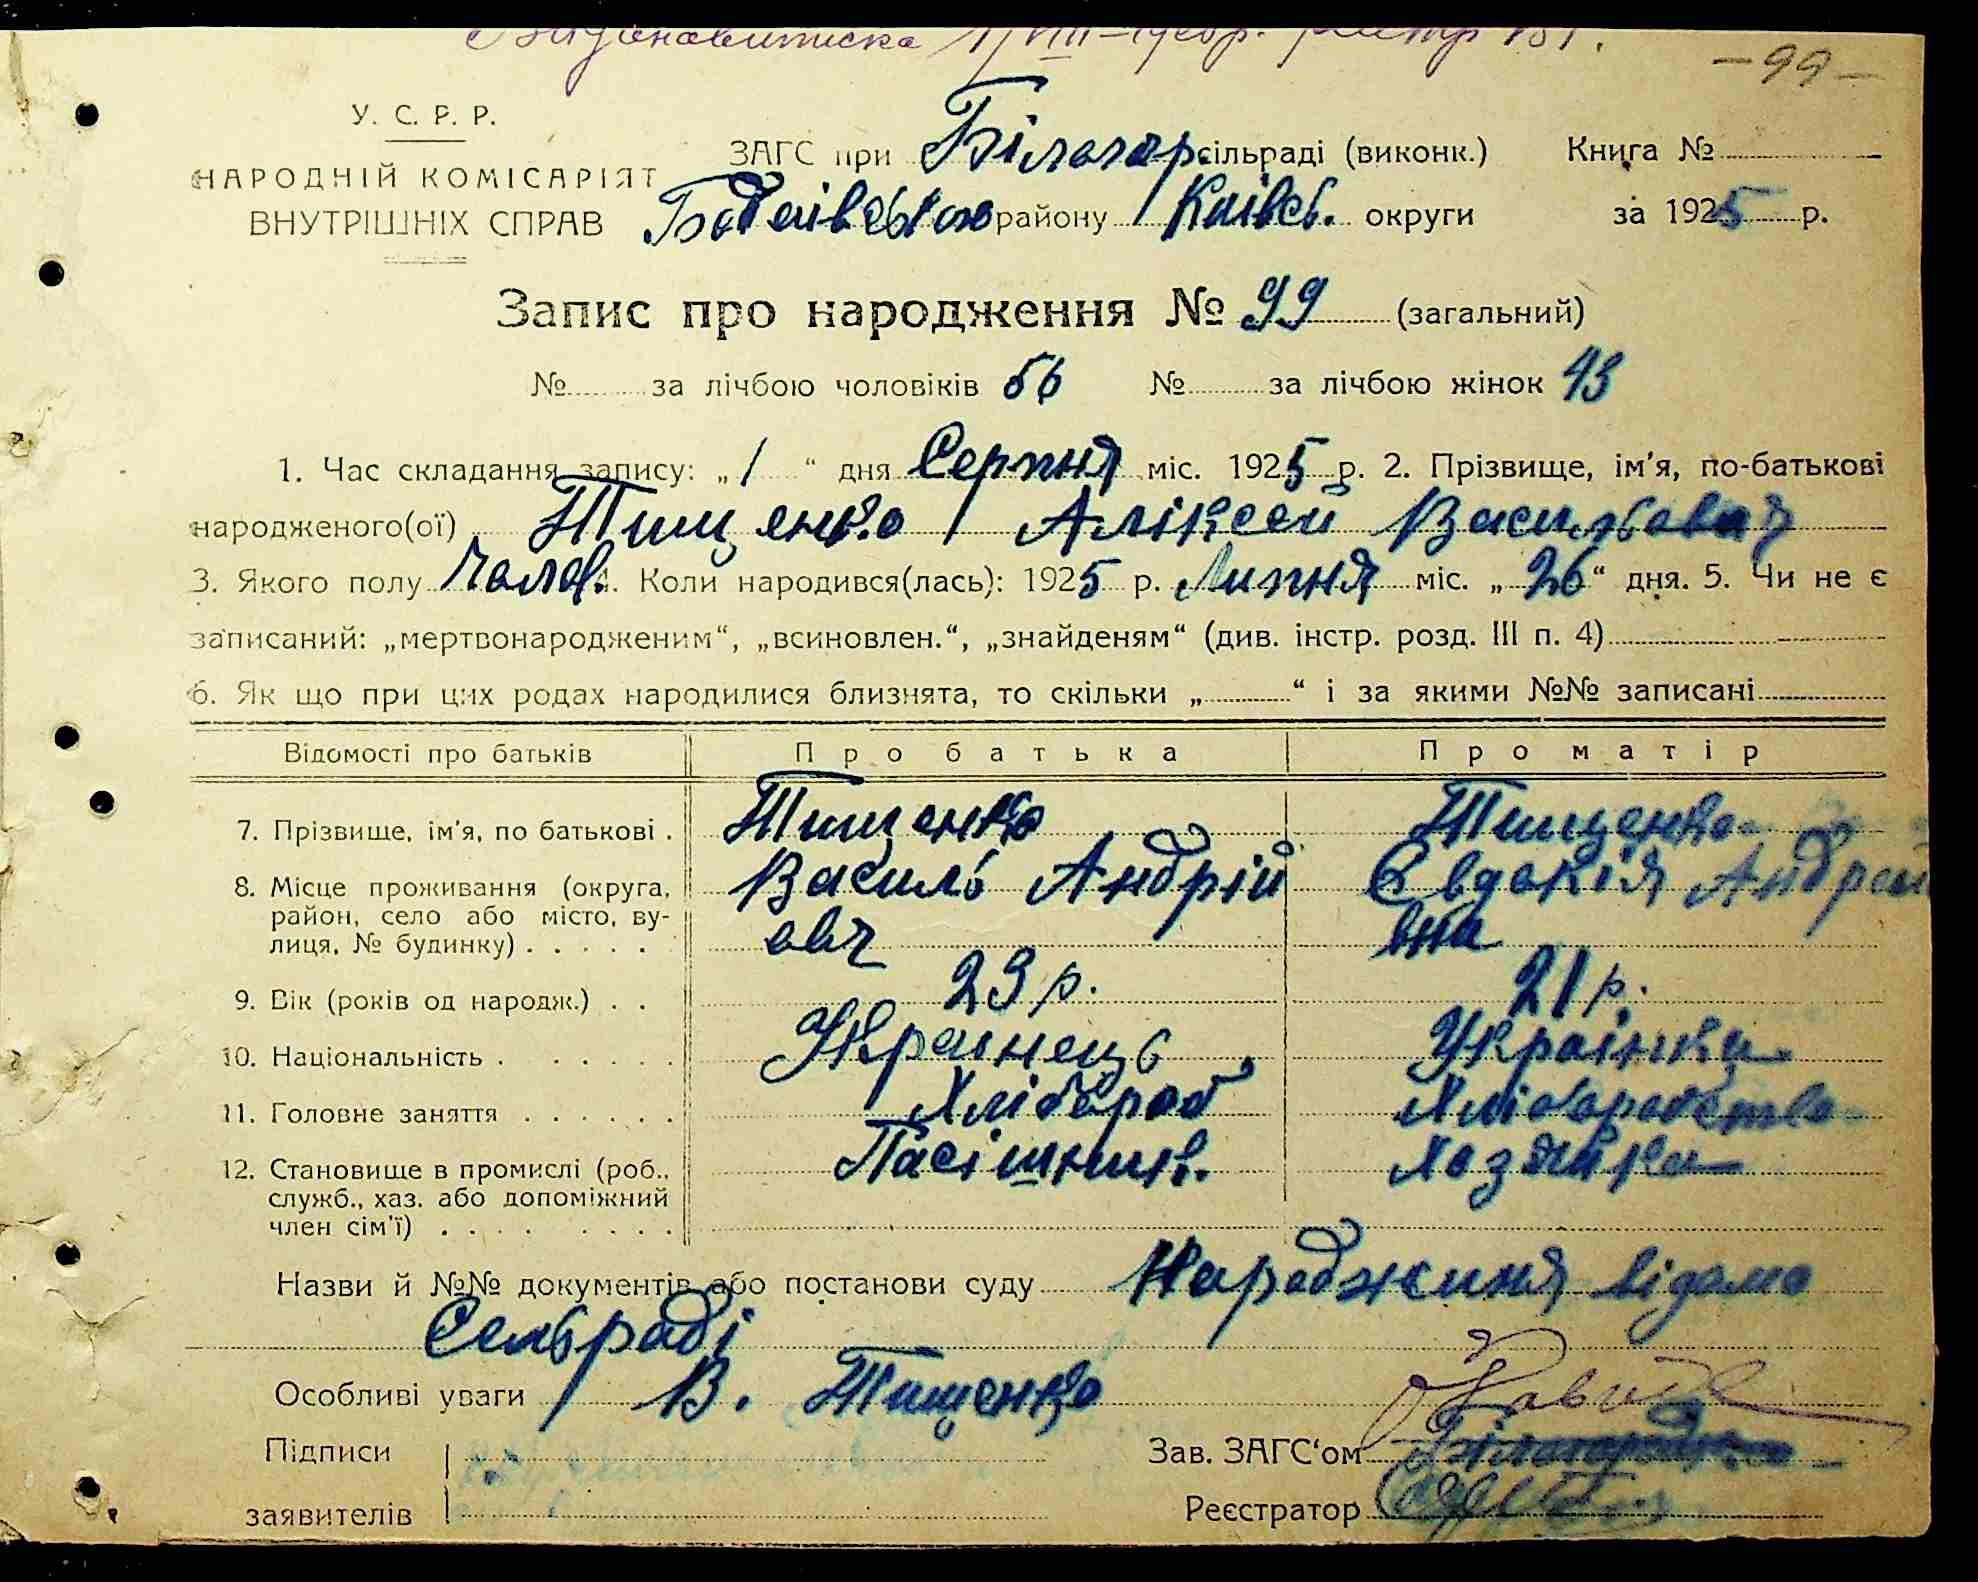 — 99 —
У. С. Р. Р.
НАРОДНІЙ КОМІСАРІЯТ
ВНУТРІШНІХ СПРАВ
ЗАГС при Білогор сільраді (виконк.) Книга №
району Київсь. округи за 1925 р.
Запис про народження № 99 (загальний)
№ за лічбою чоловіків 56 № за лічбою жінок 43
1. Час складання запису: „1“ дня Серпня міс. 1925 р. 2. Прізвище, ім'я, по-батькові
народженого(ої) Тищенко Аліксей Васильович
3. Якого полу Чолов. 4. Коли народився(лась): 1925 р. Липня міс. „26“ дня. 5. Чи не є
записаний: „мертвонародженим“, „всиновлен.“, „знайденям“ (див. інстр. розд. III п. 4)
6. Як що при цих родах народилися близнята, то скільки „ “ і за якими №№ записані
Відомості про батьків Про батька Про матір
7. Прізвище, ім'я, по батькові . Тищенко Тищенко
8. Місце проживання (округа, Василь Андрій Євдокія Андреи
район, село або місто, ву-
лиця, № будинку) . . . . . ович вна
9. Вік (років од народж.) . . 23 р. 21 р.
10. Національність . . . . . . Украінець Украінка
11. Головне заняття . . . . . . Хлібороб Хліборобство
12. Становище в промислі (роб., Пасішник. Хозяйка
служб., хаз. або допоміжний
член сім'ї) . . . . . . . .
Назви й №№ документів або постанови суду Народжиня відомо
Сельраді
Особливі уваги В. Тищенко
Підписи
заявителів
Зав. ЗАГС'ом
Реєстратор